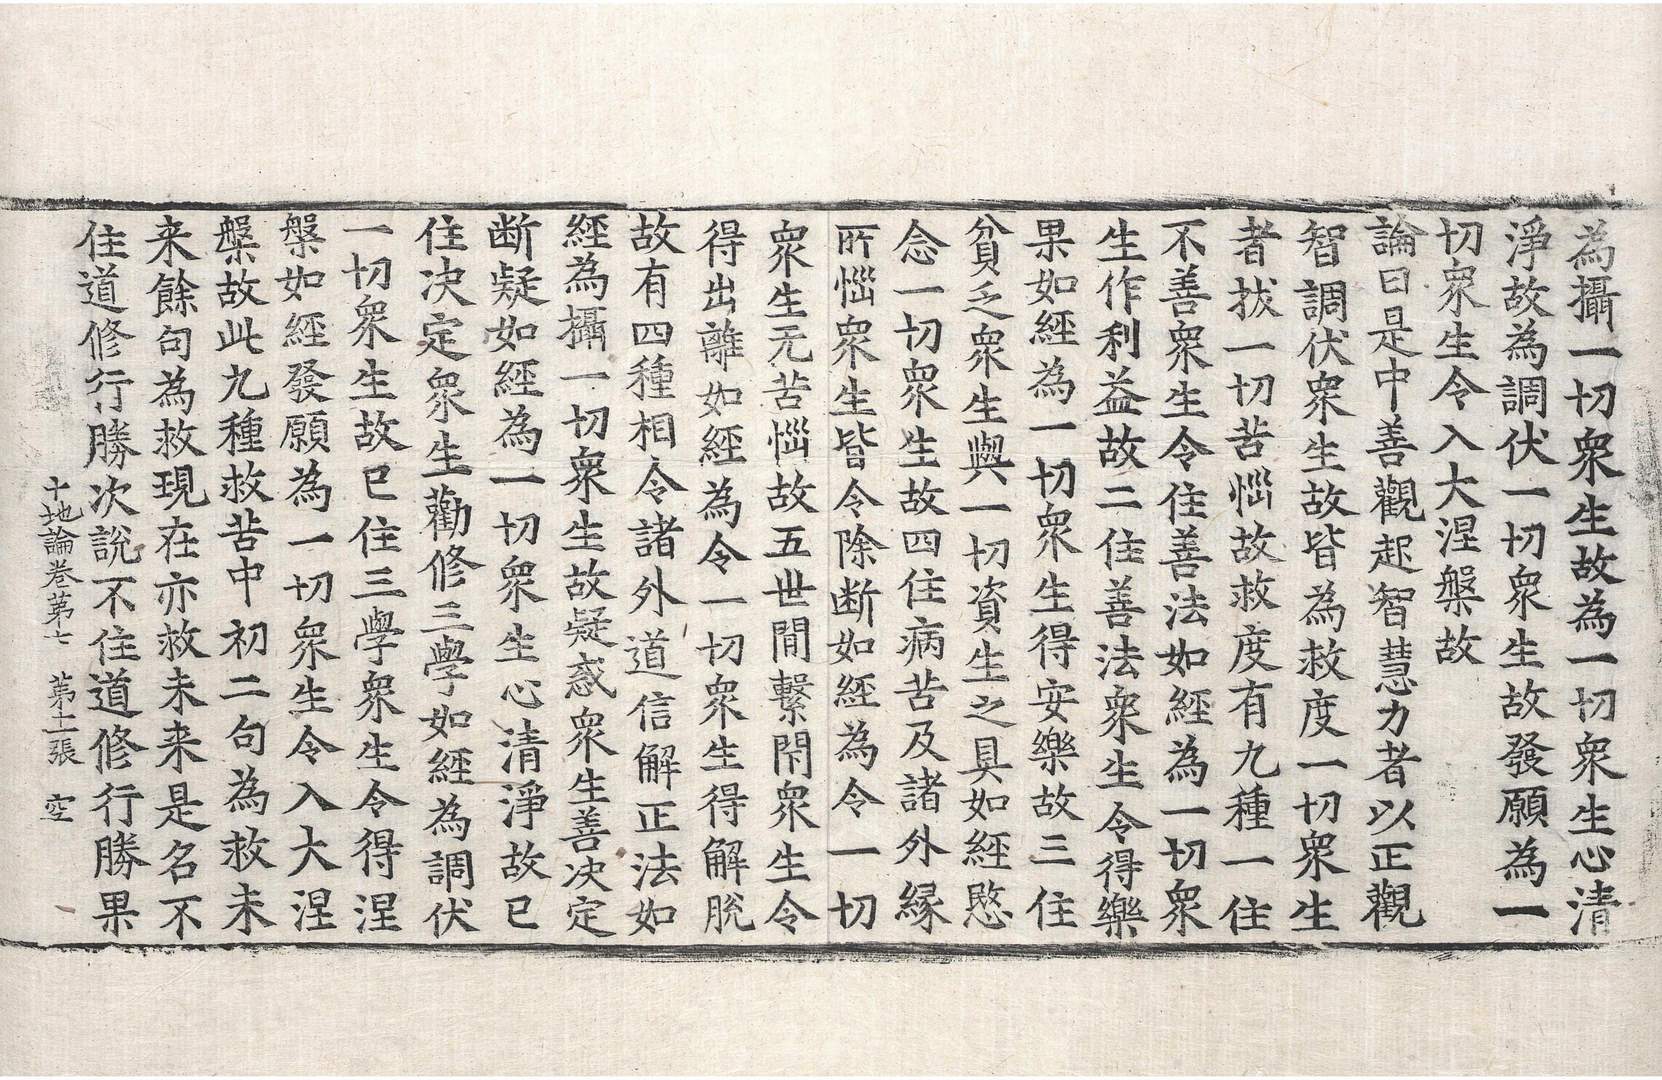 為攝一切衆生故為一切衆生心清
淨故為調伏一切衆生故發願為一
切衆生令入大涅槃故
論曰是中善觀起智慧力者以正觀
智調伏衆生故皆為救度一切衆生
者拔一切苦惱故救度有九種一住
不善衆生令住善法如經為一切衆
生作利益故二住善法衆生令得樂
果如經為一切衆生得安樂故三住
貧乏衆生與一切資生之具如經愍
念一切衆生故四住病苦及諸外縁
所惱衆生皆令除断如經為令一切
衆生无苦惱故五世間繫閇衆生令
得出離如經為令一切衆生得解脫
故有四種相令諸外道信解正法如
經為攝一切衆生故疑惑衆生善决定
断疑如經為一切衆生心清淨故已
住决定衆生勸修三學如經為調伏
一切衆生故已住三學衆生令得涅
槃如經發願為一切衆生令入大涅
槃故此九種救苦中初二句為救未
来餘句為救現在亦救未来是名不
住道修行勝次說不住道修行勝果
十地論卷苐七 苐十一張 空